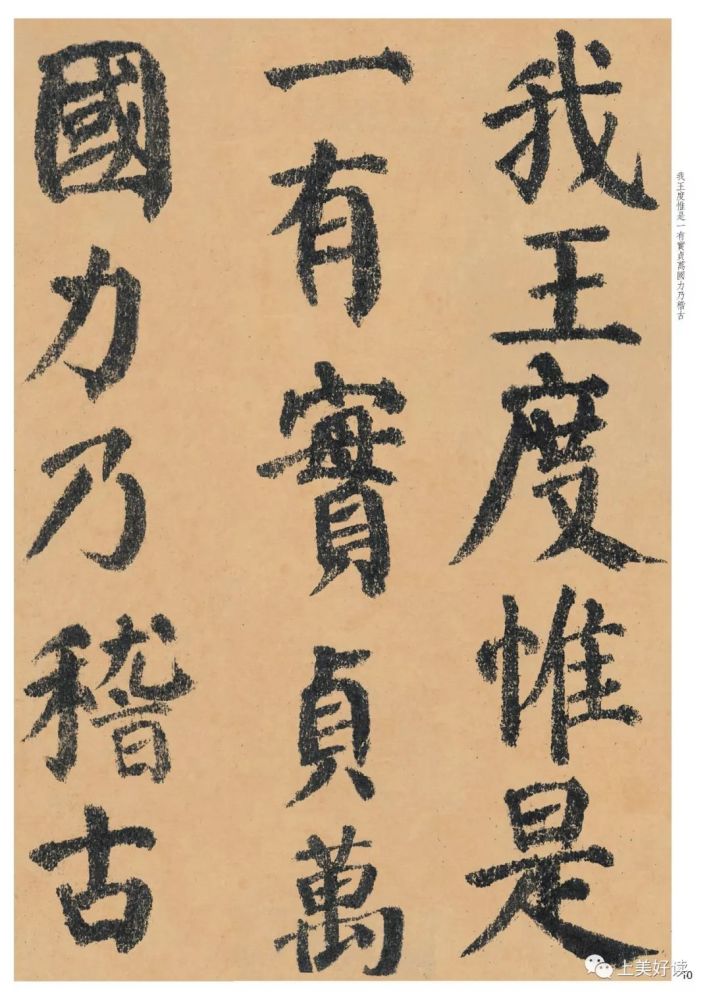 我王度惟是
一有實貞萬
國力乃稽古
我王度惟是一有實貞萬國力乃稽古
上美好读
10